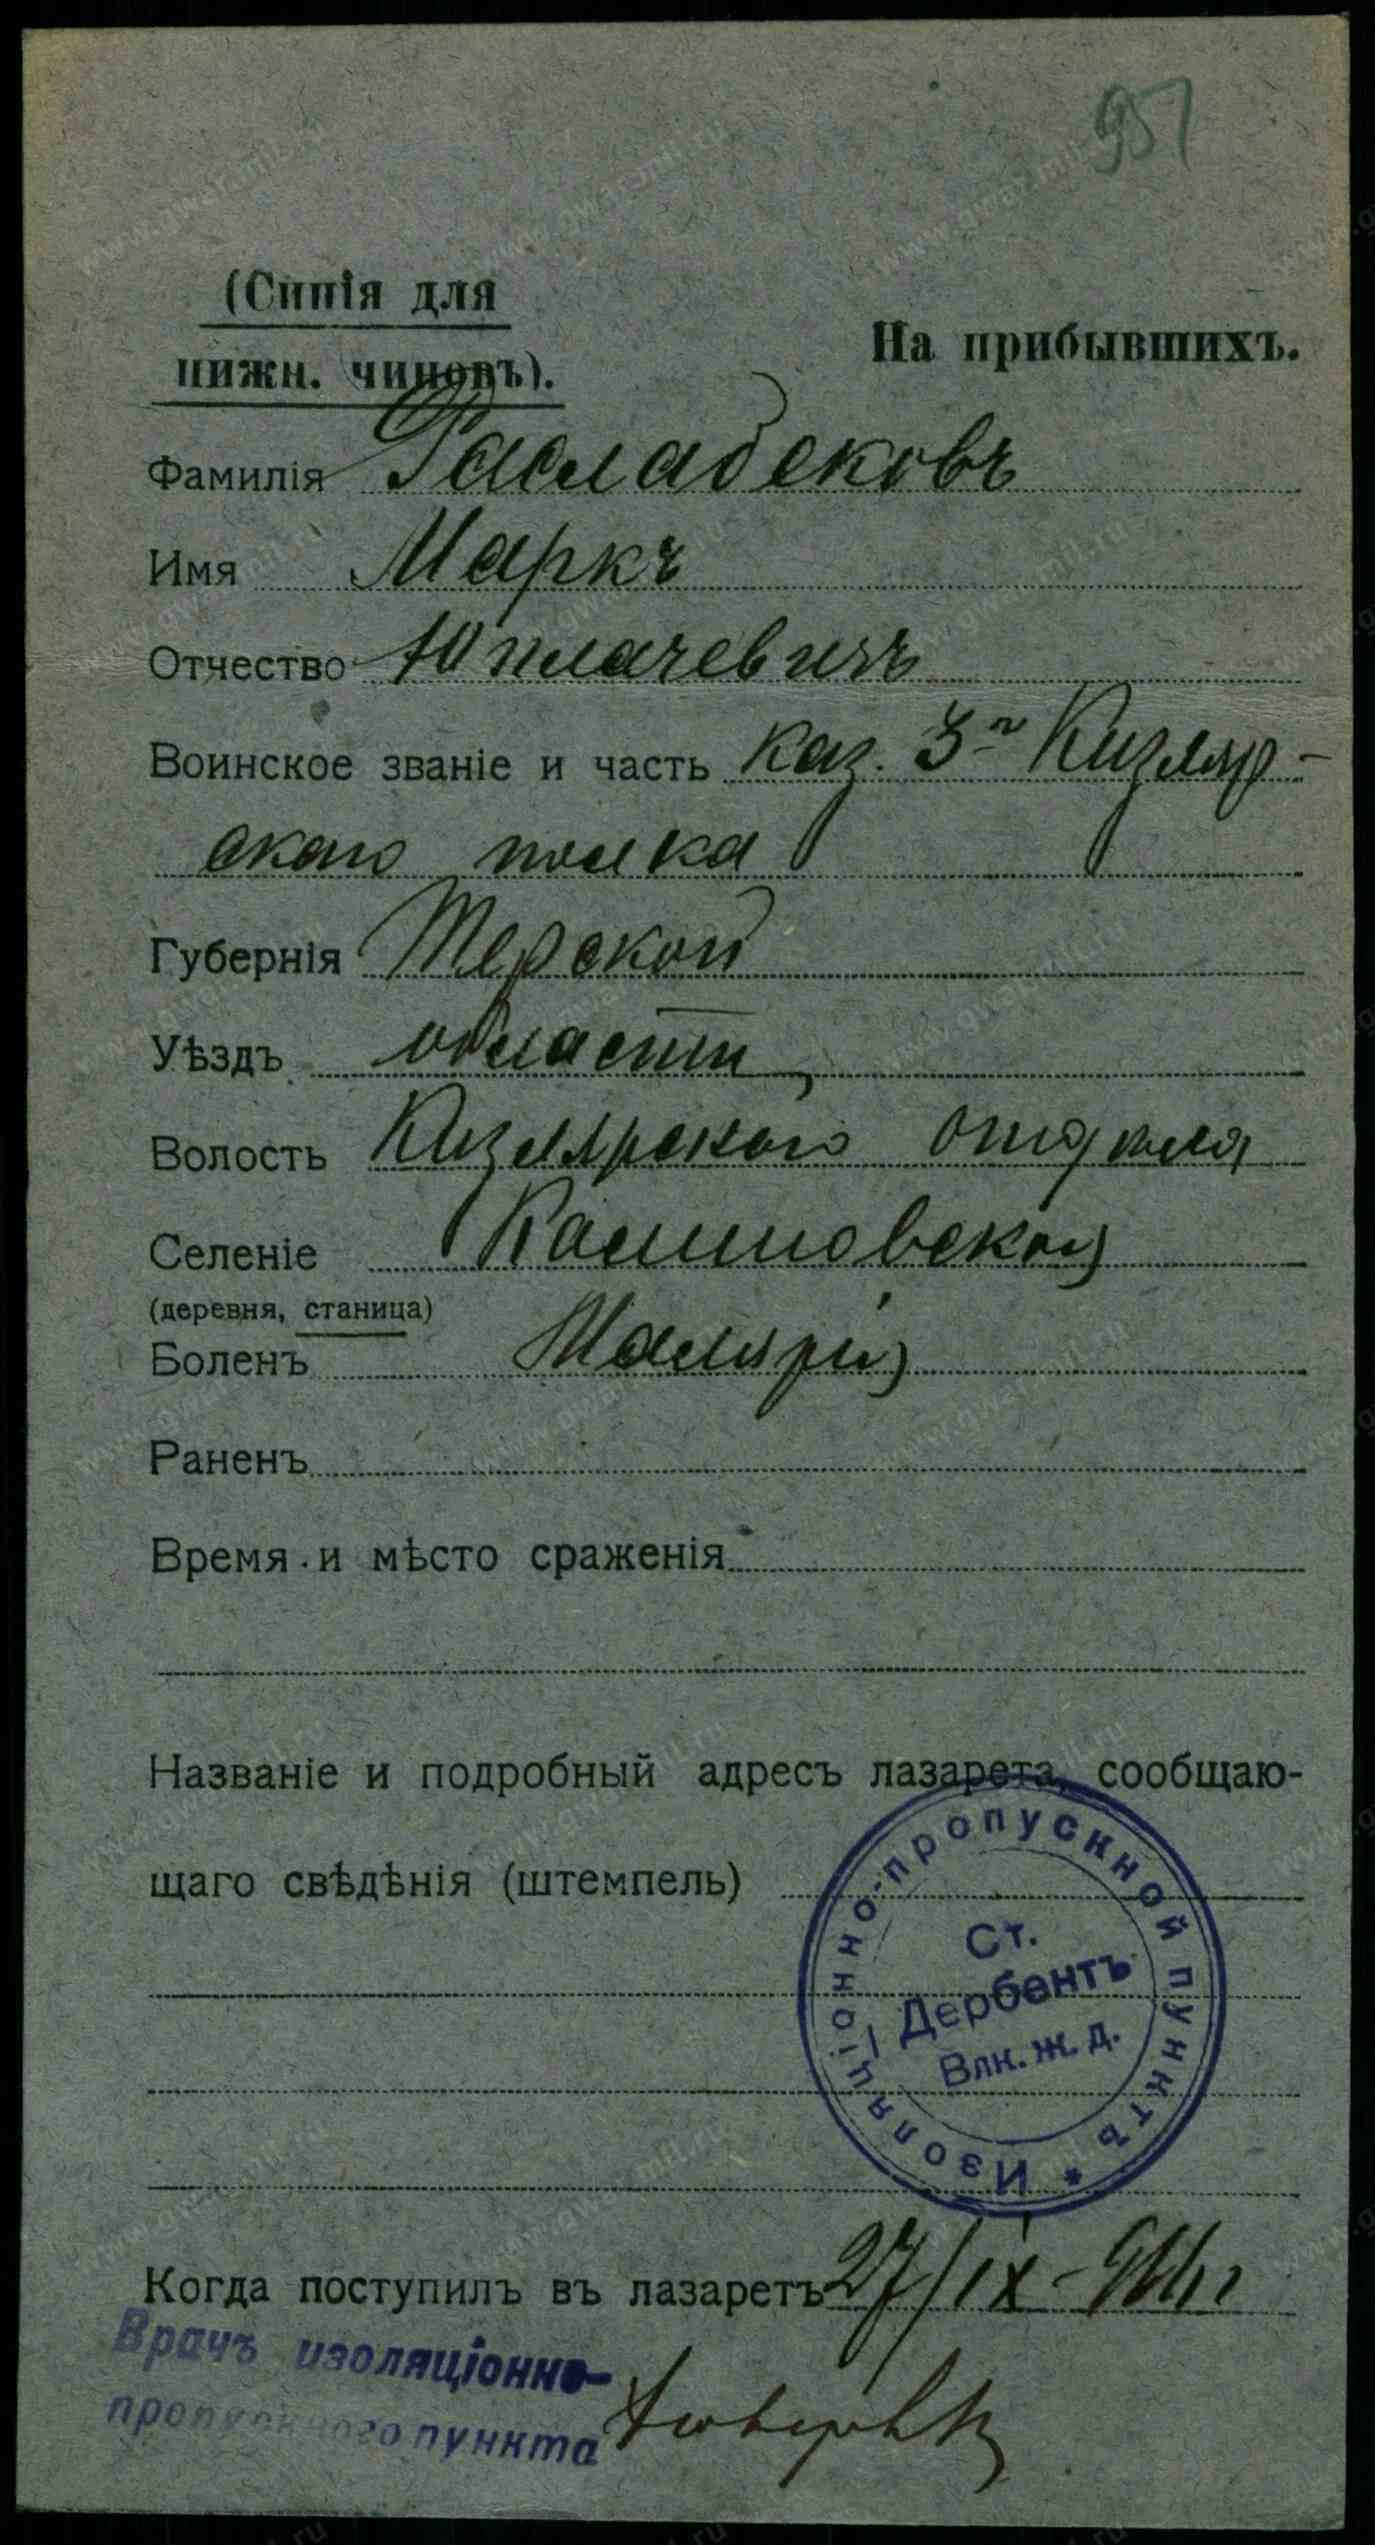 951
(Синія для
нижн. чиновъ).
На прибывшихъ.
Фамилія Расламбековъ
Имя Маркъ
Отчество
Воинское званіе и часть Каз. 3го Кизляр-
скаго полка
Губернія Терской
Уѣздъ области,
Волость Кизлярскаго отдѣла
Селеніе Калиновской
(деревня, станица)
Боленъ Малярій
Раненъ
Время и мѣсто сраженія
Названіе и подробный адресъ лазарета, сообщаю-
щаго свѣдѣнія (штемпель)
Изоляціонно-пропускной пунктъ *
Ст.
Дербентъ
Влк. ж. д.
Когда поступилъ въ лазаретъ 27/IX-
Врачъ изоляціонно-
пропускного пункта
www.gwar.mil.ru